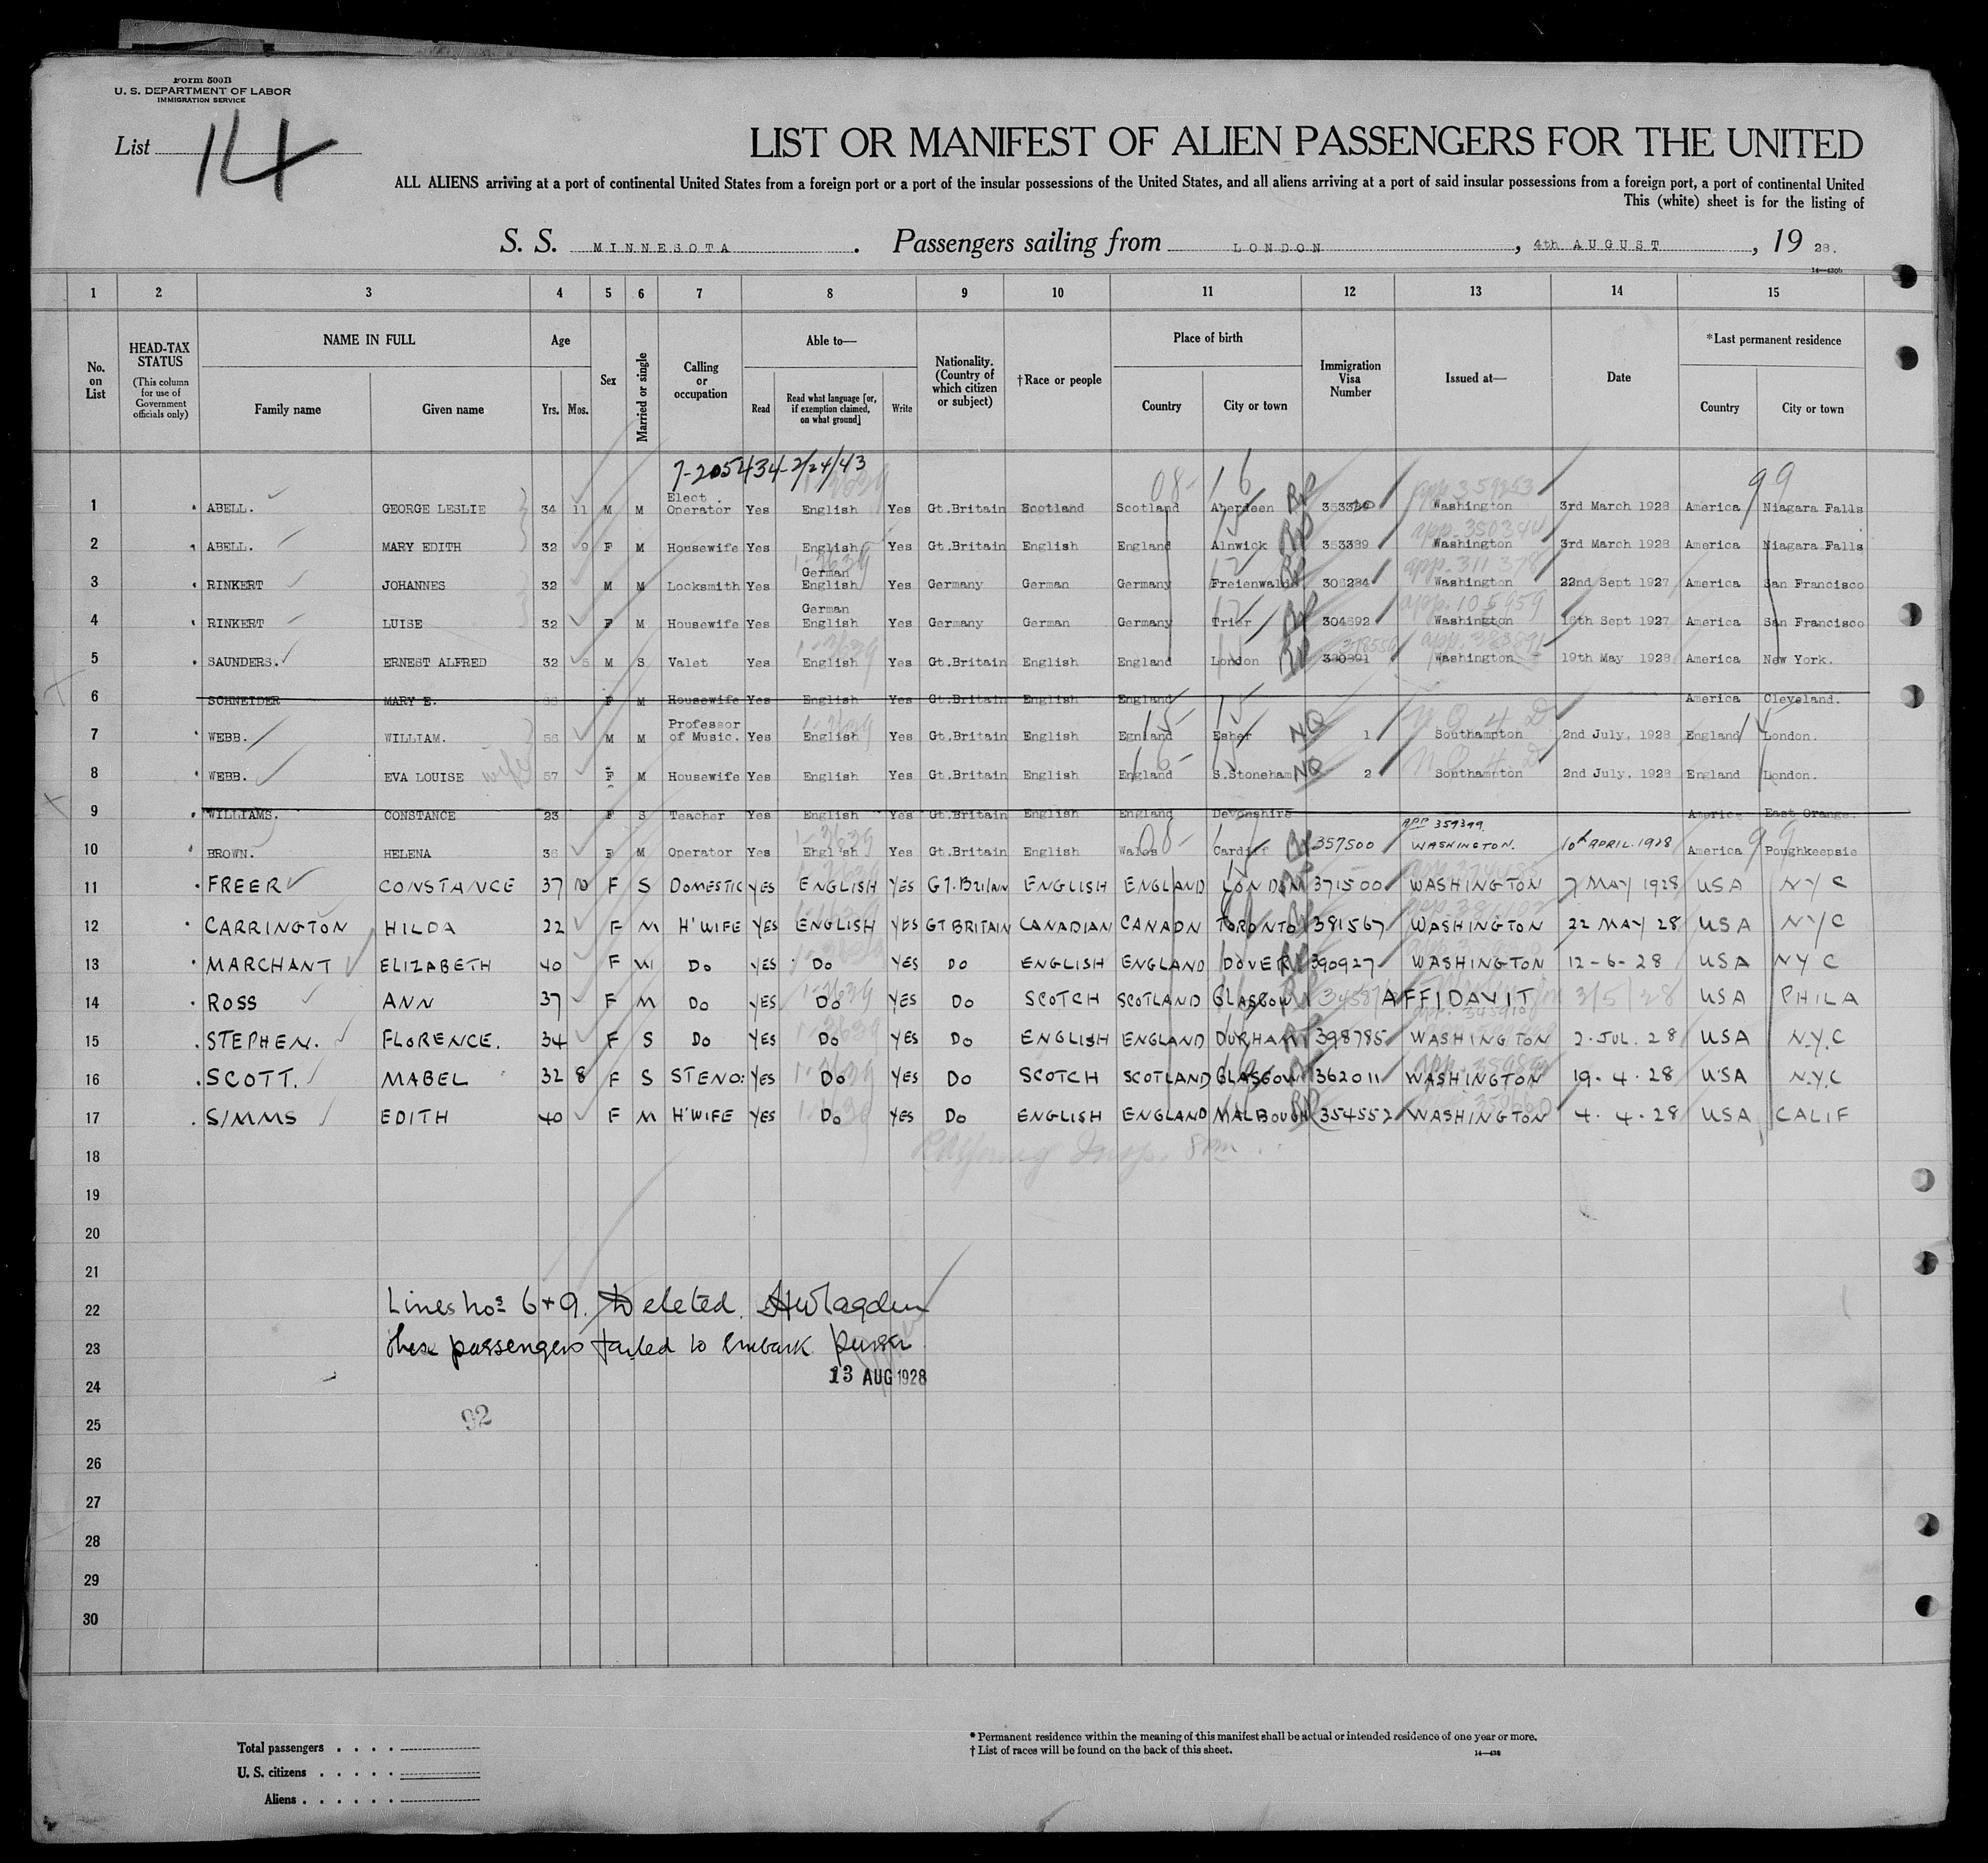 Form 500B
U. S. DEPARTMENT OF LABOR
IMMIGRATION SERVICE
List 14
LIST OR MANIFEST OF ALIEN PASSENGERS FOR THE UNITED
ALL ALIENS arriving at a port of continental United States from a foreign port or a port of the insular possessions of the United States, and all aliens arriving at a port of said insular possessions from a foreign port, a port of continental United
This (white) sheet is for the listing of
S. S. MINNESOTA. Passengers sailing from LONDON, 4th AUGUST, 19 28.
14—430b
1 2 3 4 5 6 7 8 9 10 11 12 13 14 15
No. on List
HEAD-TAX STATUS (This column for use of Government officials only)
NAME IN FULL
Family name Given name
Age
Yrs. Mos.
Sex
Married or single
Calling or occupation
Able to—
Read
Read what language [or, if exemption claimed, on what ground]
Write
Nationality. (Country of which citizen or subject)
†Race or people
Place of birth
Country City or town
Immigration Visa Number
Issued at—
Date
*Last permanent residence
Country City or town
7-205434-2/24/43
08- 16 99
1 ABELL. GEORGE LESLIE 34 11 M M Elect. Operator Yes English Yes Gt.Britain Scotland Scotland Aberdeen Washington 3rd March 1928 America Niagara Falls
2 ABELL. MARY EDITH 32 9 F M Housewife Yes English Yes Gt.Britain English England Alnwick 353389 Washington 3rd March 1928 America Niagara Falls
3 RINKERT JOHANNES 32 M M Locksmith Yes German English Yes Germany German Germany Freienwalde 306284 Washington 22nd Sept 1927 America San Francisco
4 RINKERT LUISE 32 F M Housewife Yes German English Yes Germany German Germany Trier 304692 Washington 16th Sept 1927 America San Francisco
5 SAUNDERS. ERNEST ALFRED 32 5 M S Valet Yes English Yes Gt.Britain English England London Washington 19th May 1928 America New York.
6 SCHNEIDER MARY E. F M Housewife Yes English Yes Gt.Britain English England America Cleveland.
7 WEBB. WILLIAM. 56 M M Professor of Music. Yes English Yes Gt.Britain English Egnland Esher NQ 1 Southampton 2nd July. 1928 England London.
8 WEBB. EVA LOUISE wife 57 F M Housewife Yes English Yes Gt.Britain English England S.Stoneham NQ 2 Southampton 2nd July. 1928 England London.
9 WILLIAMS. CONSTANCE 23 F S Teacher Yes English Yes Gt.Britain English England Devonshire America East Orange.
APP 359399
10 BROWN. HELENA 36 F M Operator Yes English Yes Gt.Britain English Wales Cardiff 357500 WASHINGTON. 10th APRIL.1928 America Poughkeepsie
11 FREER CONSTANCE 37 10 F S DOMESTIC YES ENGLISH YES GT.Britain ENGLISH ENGLAND LONDON 371500 WASHINGTON 7 MAY 1928 USA NYC
12 CARRINGTON HILDA 22 F M H'WIFE YES ENGLISH YES GT BRITAIN CANADIAN CANADN TORONTO 381567 WASHINGTON 22 MAY 28 USA NYC
13 MARCHANT ELIZABETH 40 F M DO YES DO YES DO ENGLISH ENGLAND DOVER 390927 WASHINGTON 12-6-28 USA NYC
14 ROSS ANN 37 F M DO YES DO YES DO SCOTCH SCOTLAND GLASGOW AFFIDAVIT 3/5/28 USA PHILA
15 STEPHEN. FLORENCE. 34 F S DO YES DO YES DO ENGLISH ENGLAND DURHAM 398785 WASHINGTON 2.JUL.28 USA N.Y.C
16 SCOTT. MABEL 32 8 F S STENO: YES DO YES DO SCOTCH SCOTLAND GLASGOW 362011 WASHINGTON 19.4.28 USA N.Y.C
17 SIMMS EDITH 40 F M H'WIFE YES DO YES DO ENGLISH ENGLAND MALBOUGH 354552 WASHINGTON 4.4.28 USA CALIF
18
19
20
21
22 Lines nos 6+9. Deleted.
23 these passengers failed to embark. Purser
24 13 AUG 1928
25 92
26
27
28
29
30
Total passengers . . . .
U. S. citizens . . . . .
Aliens . . . . . .
* Permanent residence within the meaning of this manifest shall be actual or intended residence of one year or more.
† List of races will be found on the back of this sheet.
14—430